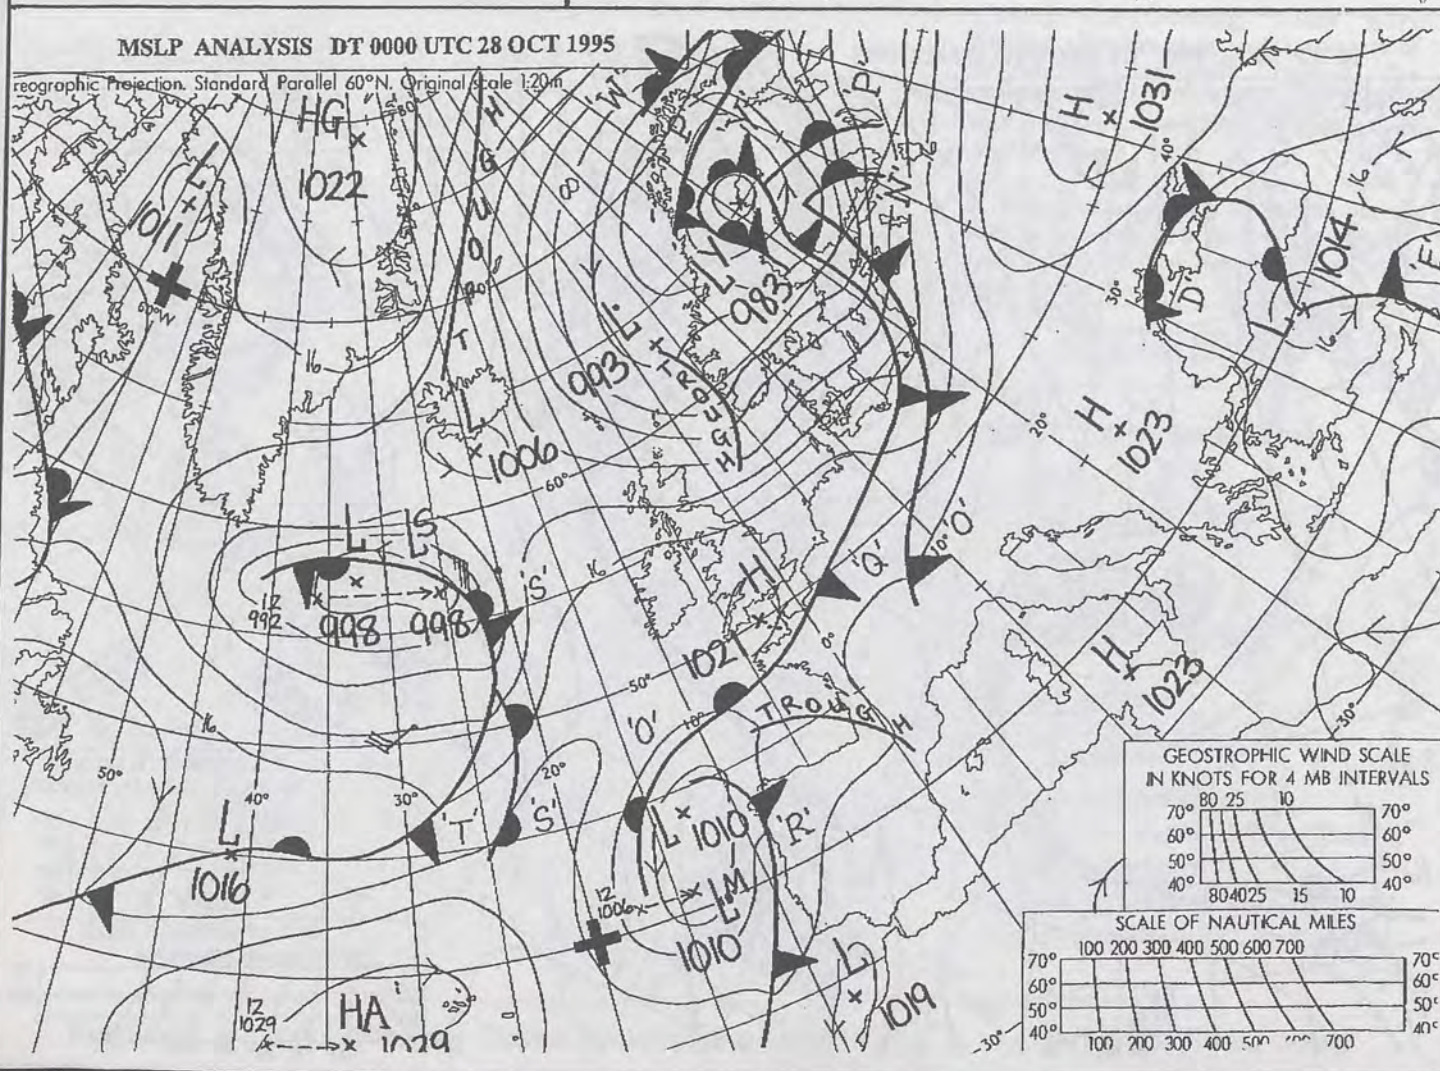 MSLP ANALYSIS DT 0000 UTC 28 OCT 1995
reographic Projection. Standard Parallel 60°N. Original scale 1:20m
HG
1022
80
L
1011
60°W
16
TROUGH
L
1006
60°
8
'W'
'P'
'N'
H
1031
40°
16
1014
L
16
'D'
30°
LY
983
L
993
TROUGH
H
1023
20°
L
LS
12
992
998
998
'S'
16
H
1021
'Q'
10°
'O'
0°
H
1023
30°
50°
'O'
10°
TROUGH
16
50°
40°
30°
20°
'T'
'S'
L
1016
L
1010
'R'
12
1006
LM
1010
L
1019
12
1029
HA
1029
30°
GEOSTROPHIC WIND SCALE
IN KNOTS FOR 4 MB INTERVALS
80 25 10
70° 70°
60° 60°
50° 50°
40° 40°
80 40 25 15 10
SCALE OF NAUTICAL MILES
100 200 300 400 500 600 700
70° 70°
60° 60°
50° 50°
40° 40°
100 200 300 400 500 600 700